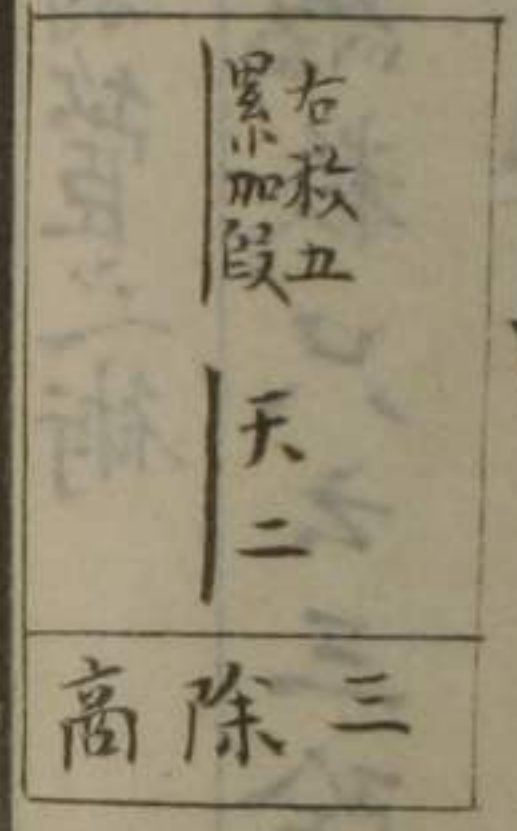 右数五
累加段
天二
三除商